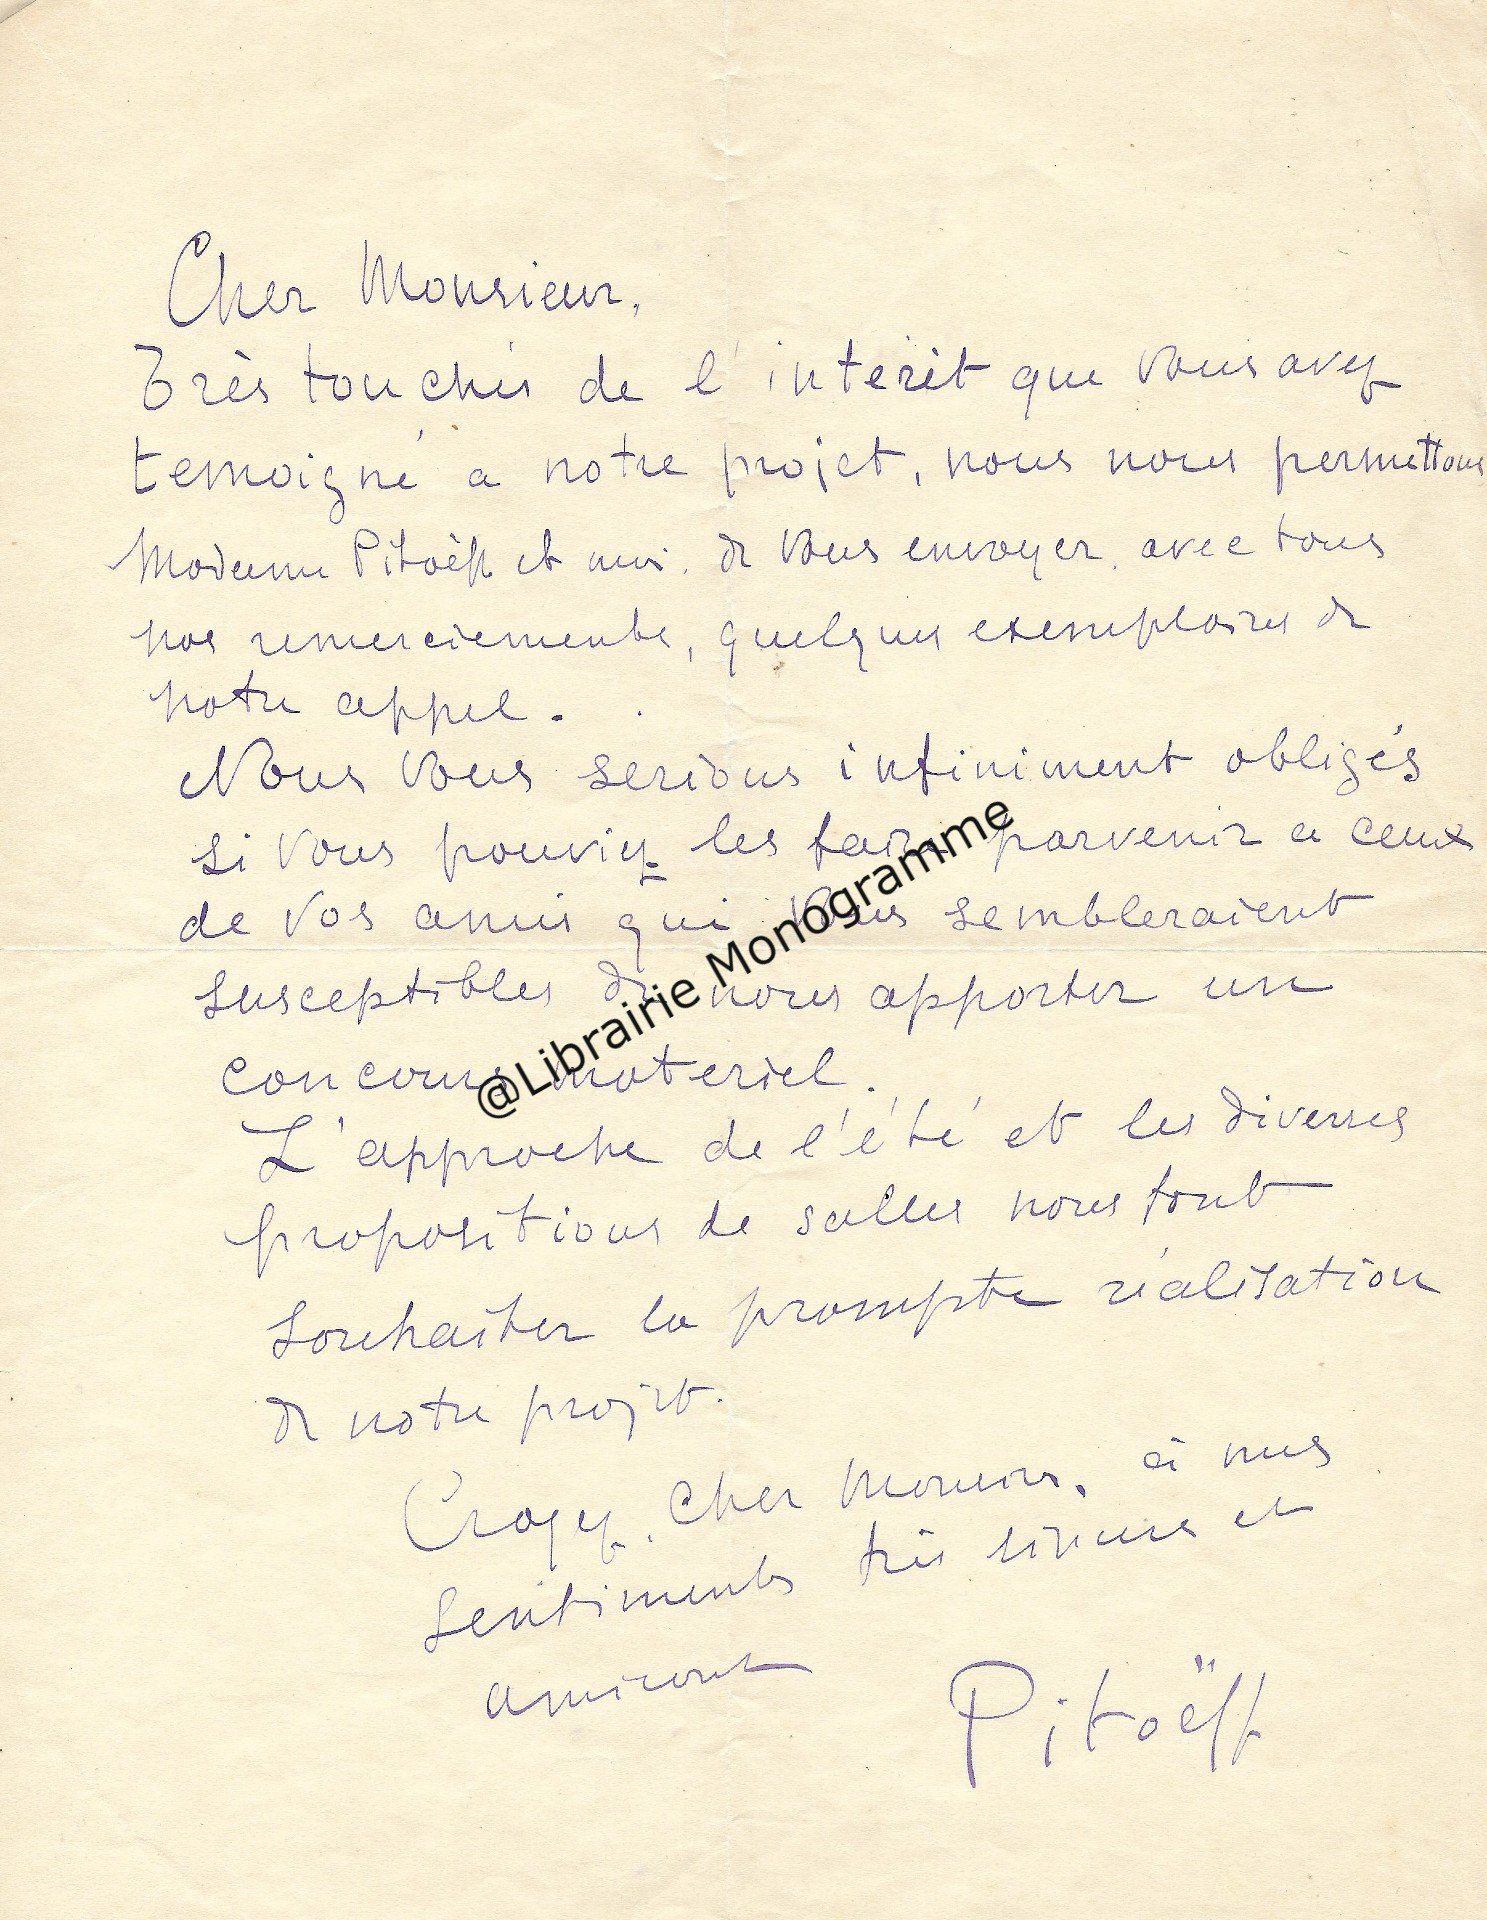 Cher Monsieur,
Très touchés de l'interêt que vous avez
temoigné a notre projet, nous nous permettons
Madame Pitoëff et moi. de vous envoyer avec tous
nos remerciements, quelques exemplaires de
notre appel.
Nous vous serions infiniment obligés
si vous pouviez les faire parvenir a ceux
de vos amis qui vous sembleraient
susceptibles de nous apporter un
concours materiel.
L'approche de l'été et les diverses
propositions de salles nous font
souhaiter la prompte réalisation
de notre projet.
Croyez, cher Monsieur, à mes
sentiments très sincères et
amicaux
Pitoëff
@Librairie Monogramme